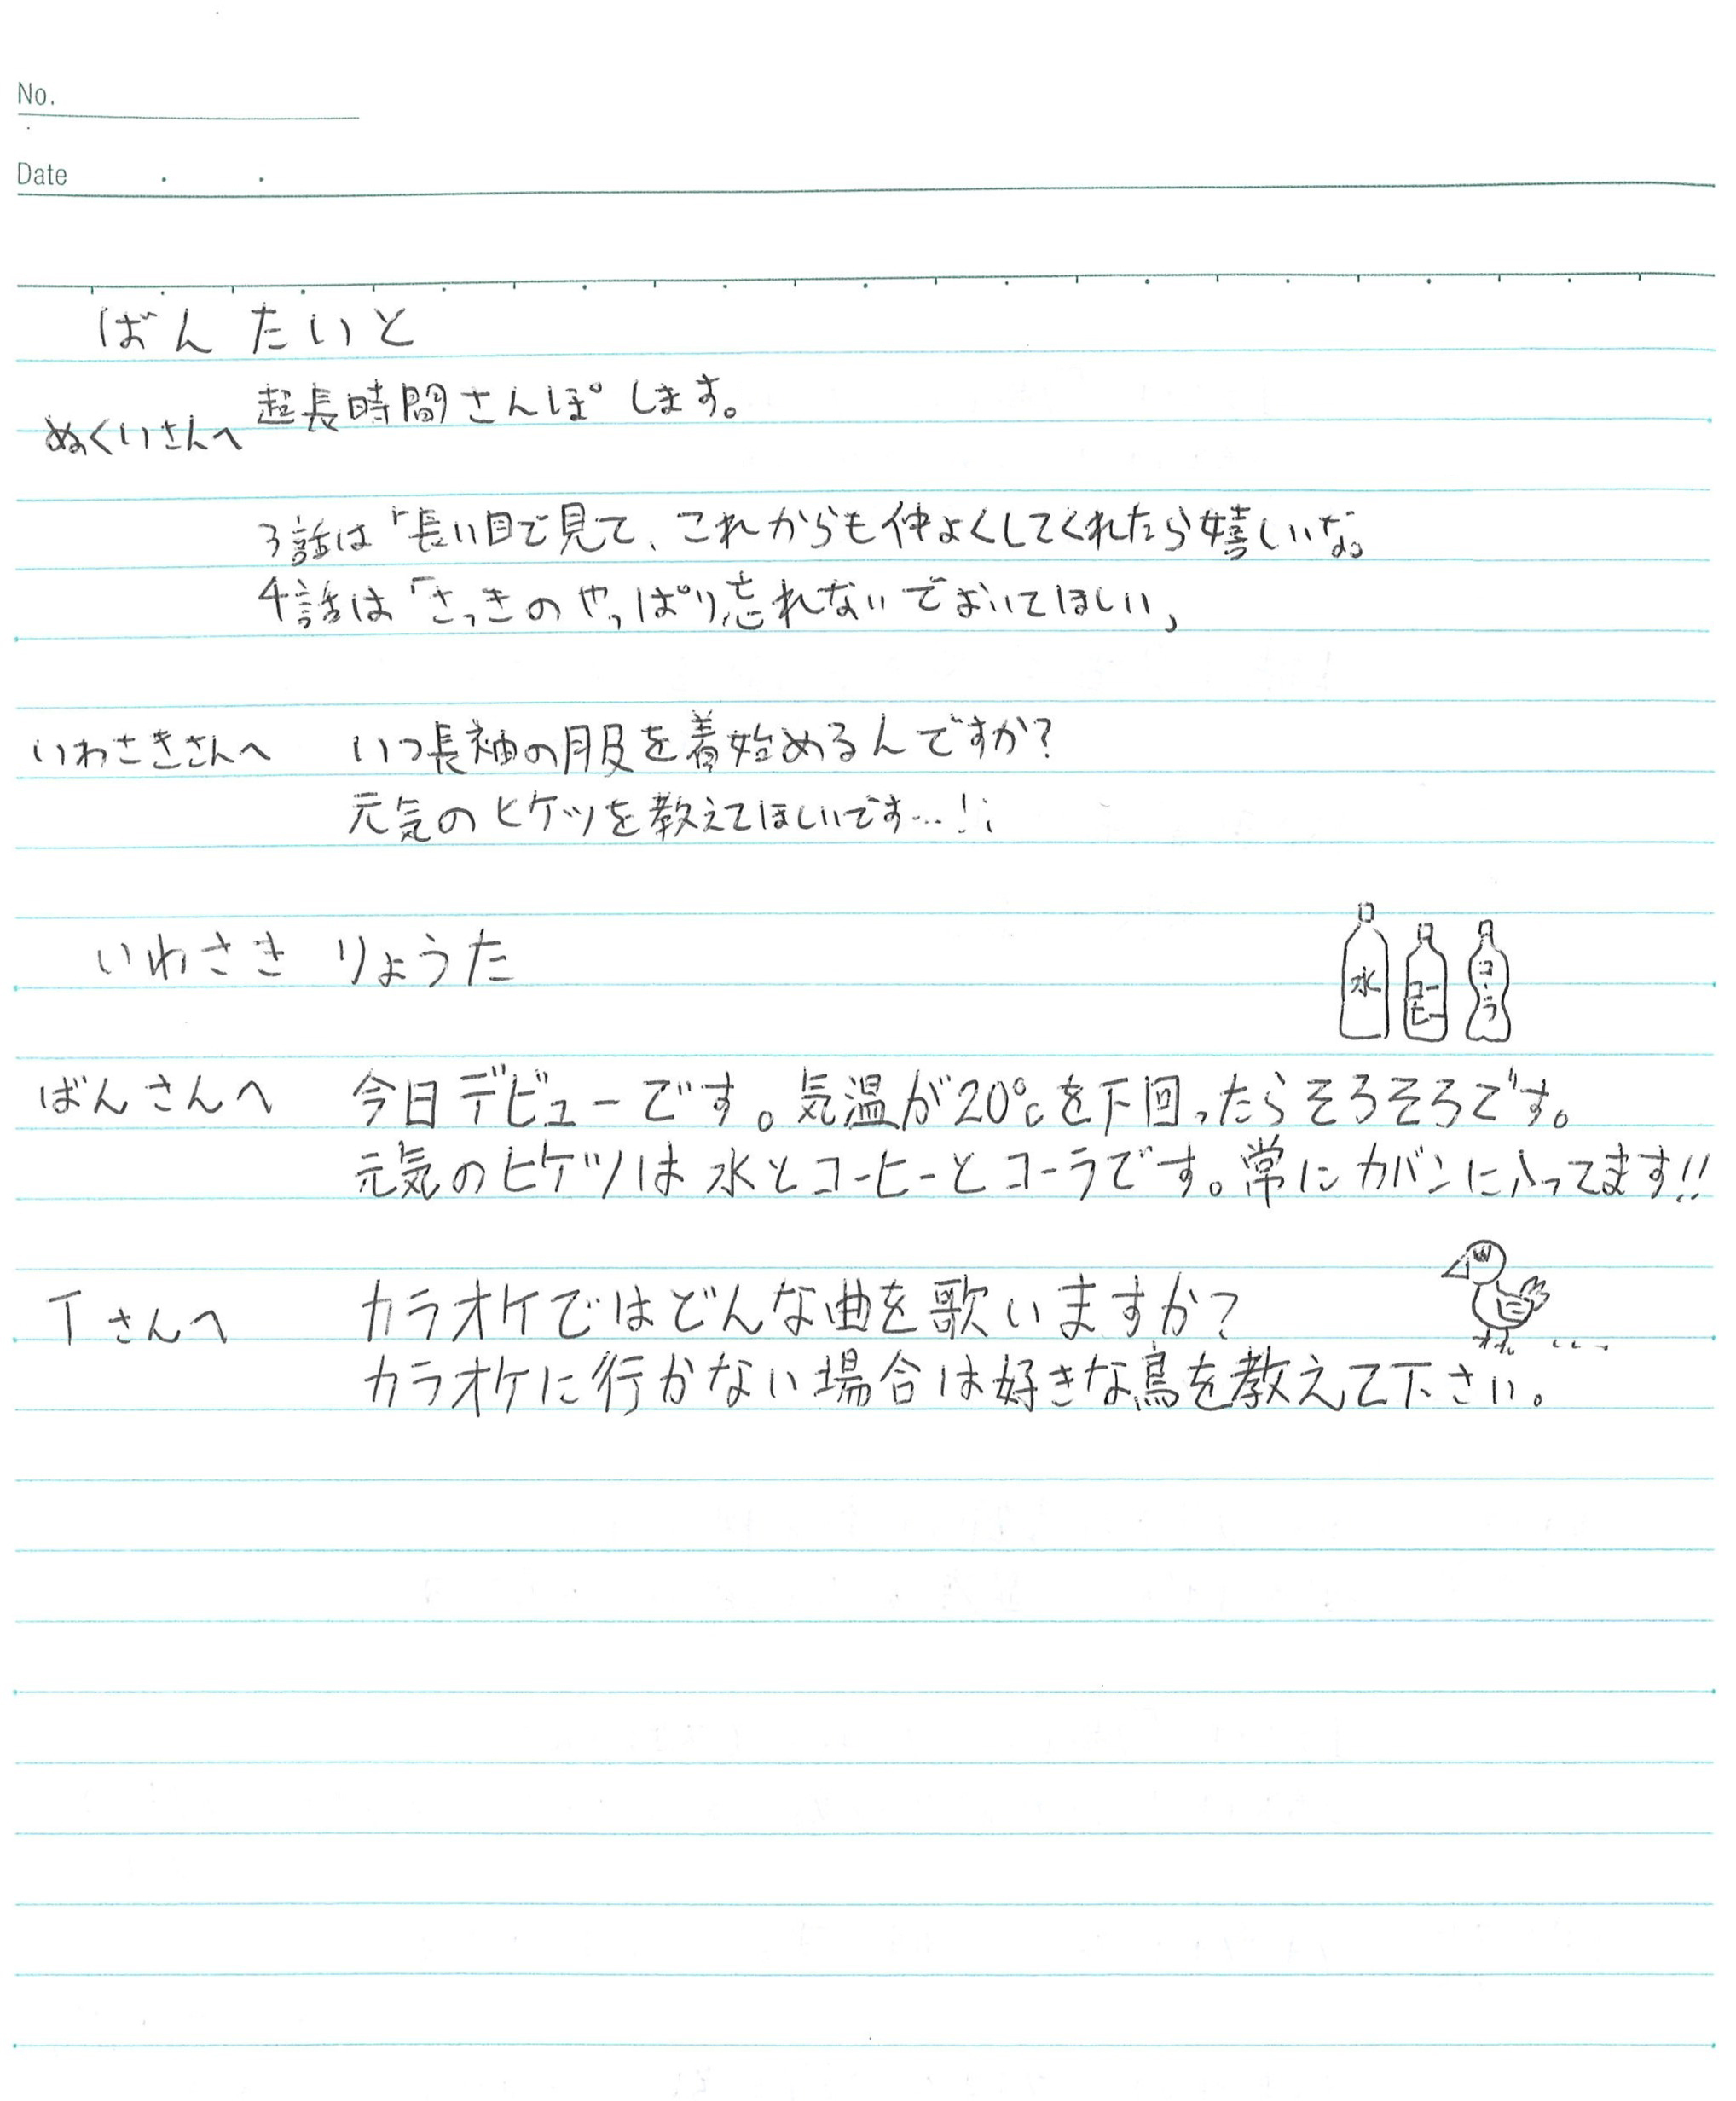 No.
Date . .
ばん たいと
超長時間さんぽします。
ぬくいさんへ
3話は「長い目で見て、これからも仲よくしてくれたら嬉しいな。
4話は「さっきのやっぱり忘れないでおいてほしい」
いわさきさんへ いつ長袖の服を着始めるんですか?
元気のヒケツを教えてほしいです…!!
いわさき りょうた
水 コーヒー コーラ
ばんさんへ 今日デビューです。気温が20℃を下回ったらそろそろです。
元気のヒケツは水とコーヒーとコーラです。常にカバンに入ってます!!
Tさんへ カラオケではどんな曲を歌いますか?
カラオケに行かない場合は好きな鳥を教えて下さい。